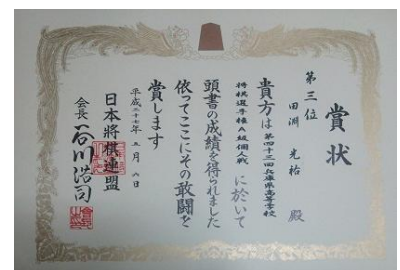 賞状
第三位
田淵 光祐 殿
貴方は第四十三回兵庫県高等学校
将棋選手権A級個人戦 に於いて
頭書の成績を得られました
依ってここにその敢闘を
賞します
平成二十七年 五月 六日
日本將棋連盟
会長 谷川浩司